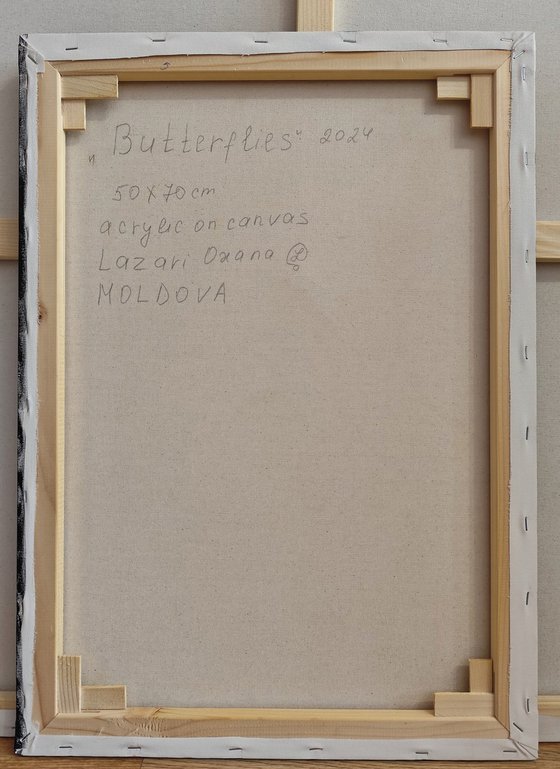 „Butterflies" 2024
50x70cm
acrylic on canvas
Lazari Oxana
MOLDOVA